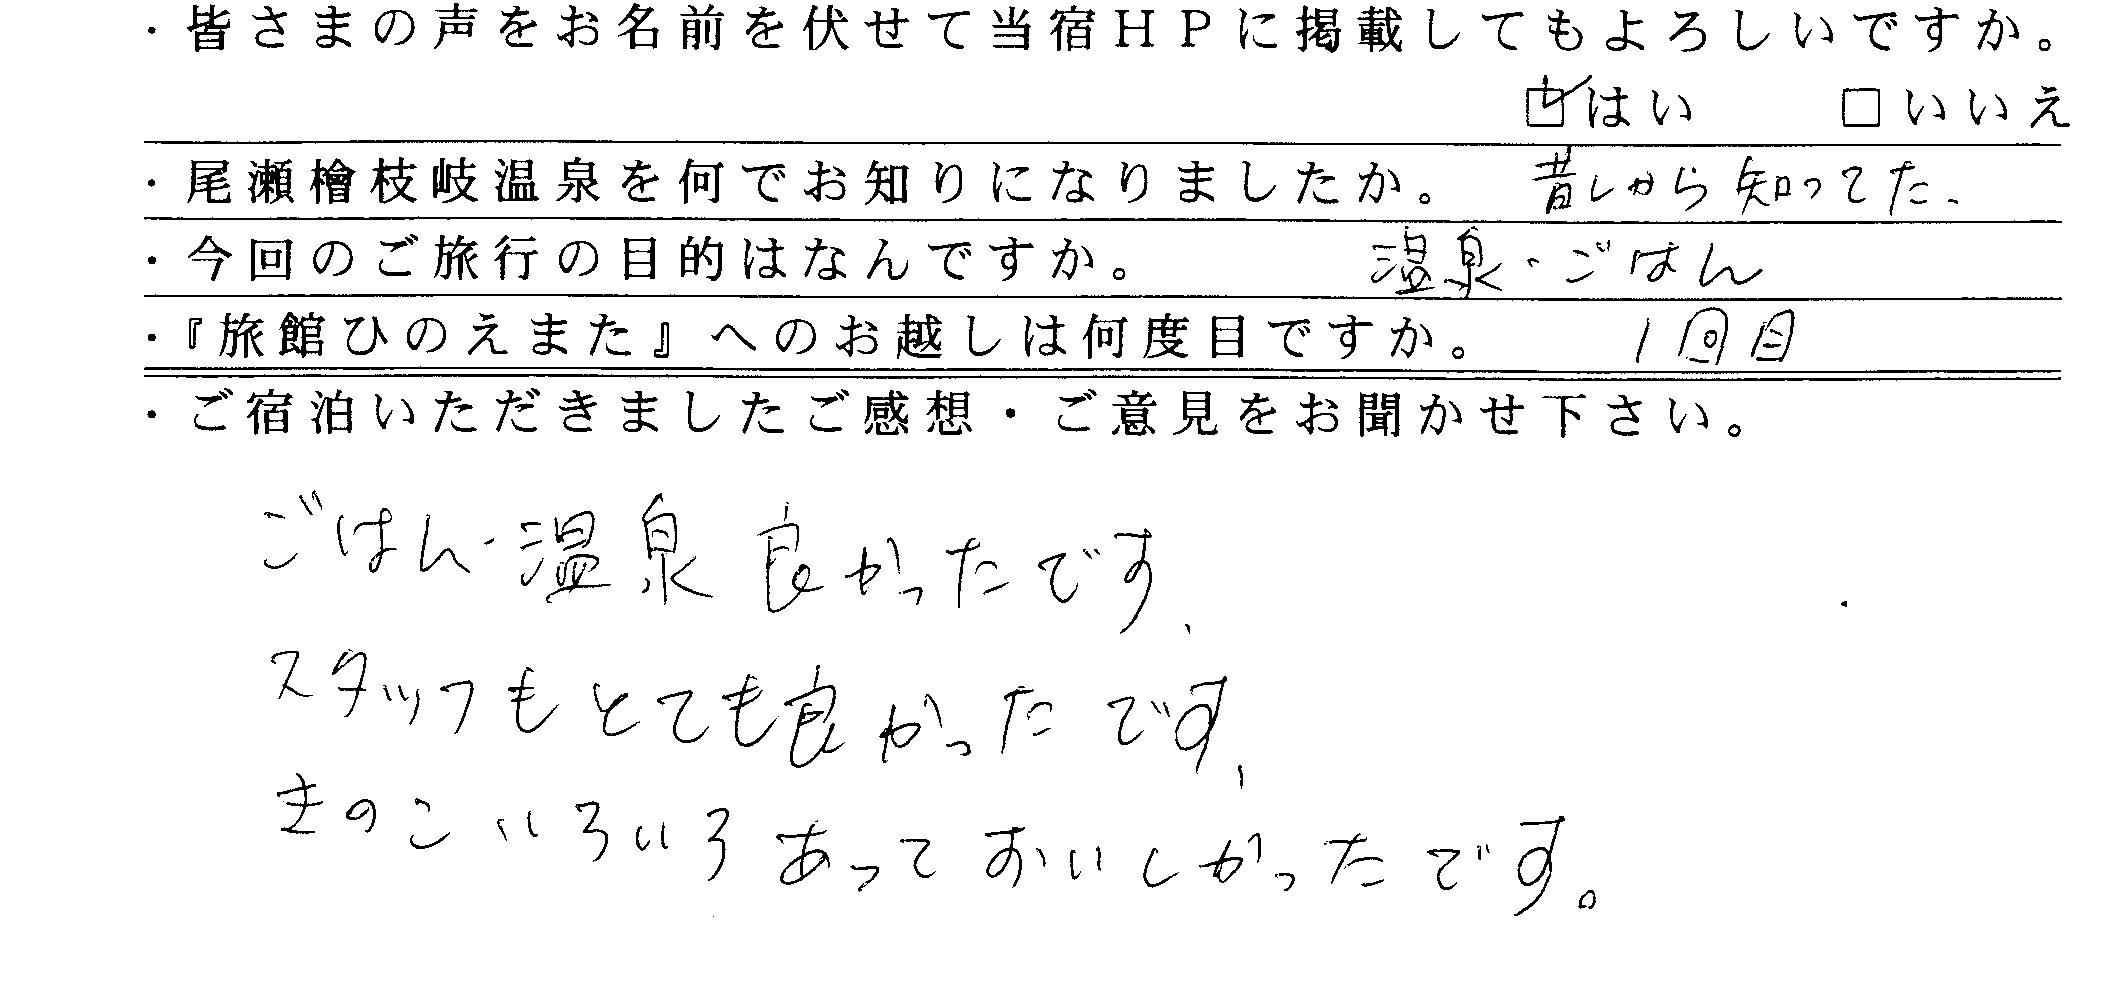 ・皆さまの声をお名前を伏せて当宿ＨＰに掲載してもよろしいですか。
☑はい　□いいえ
・尾瀬檜枝岐温泉を何でお知りになりましたか。　昔しから知ってた、
・今回のご旅行の目的はなんですか。　温泉・ごはん
・『旅館ひのえまた』へのお越しは何度目ですか。　1回目
・ご宿泊いただきましたご感想・ご意見をお聞かせ下さい。
ごはん・温泉良かったです、
スタッフもとても良かったです、
きのこいろいろあっておいしかったです。